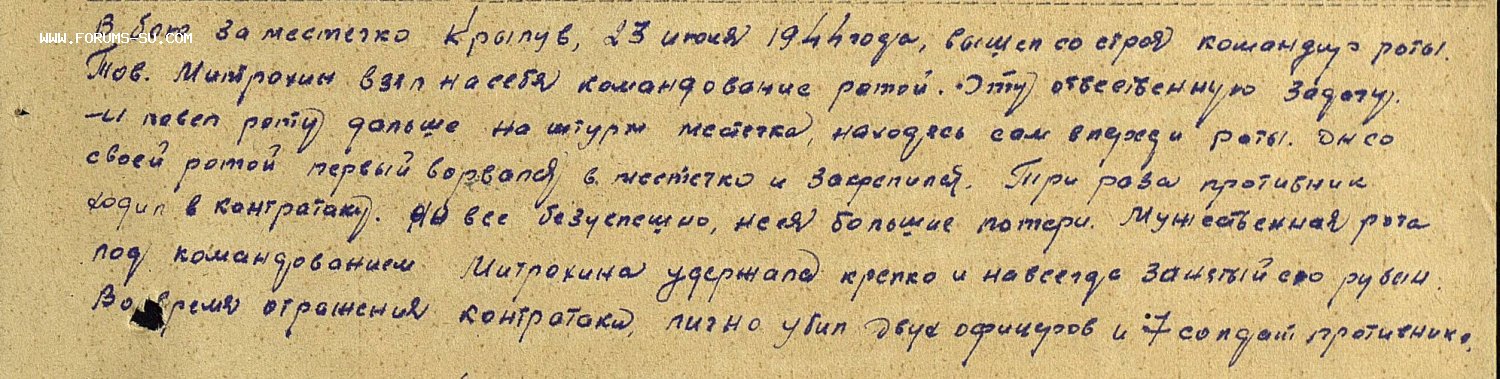 В бою за местечко Крылув, 23 июля 1944 года, вышел со строя командир роты.
WWW.FORUMS-SU.COM
Тов. Митрохин взял на себя командование ротой. Эту ответственную задачу.
И повел роту дальше на штурм местечка, находясь сам впереди роты. Он со
своей ротой первый ворвался в местечко и закрепился. Три раза противник
ходил в контратаку. Но все безуспешно, неся большие потери. Мужественная рота
под командованием Митрохина удержала крепко и навсегда занятый ею рубеж.
Во время отражения контратаки, лично убил двух офицеров и 7 солдат противника.